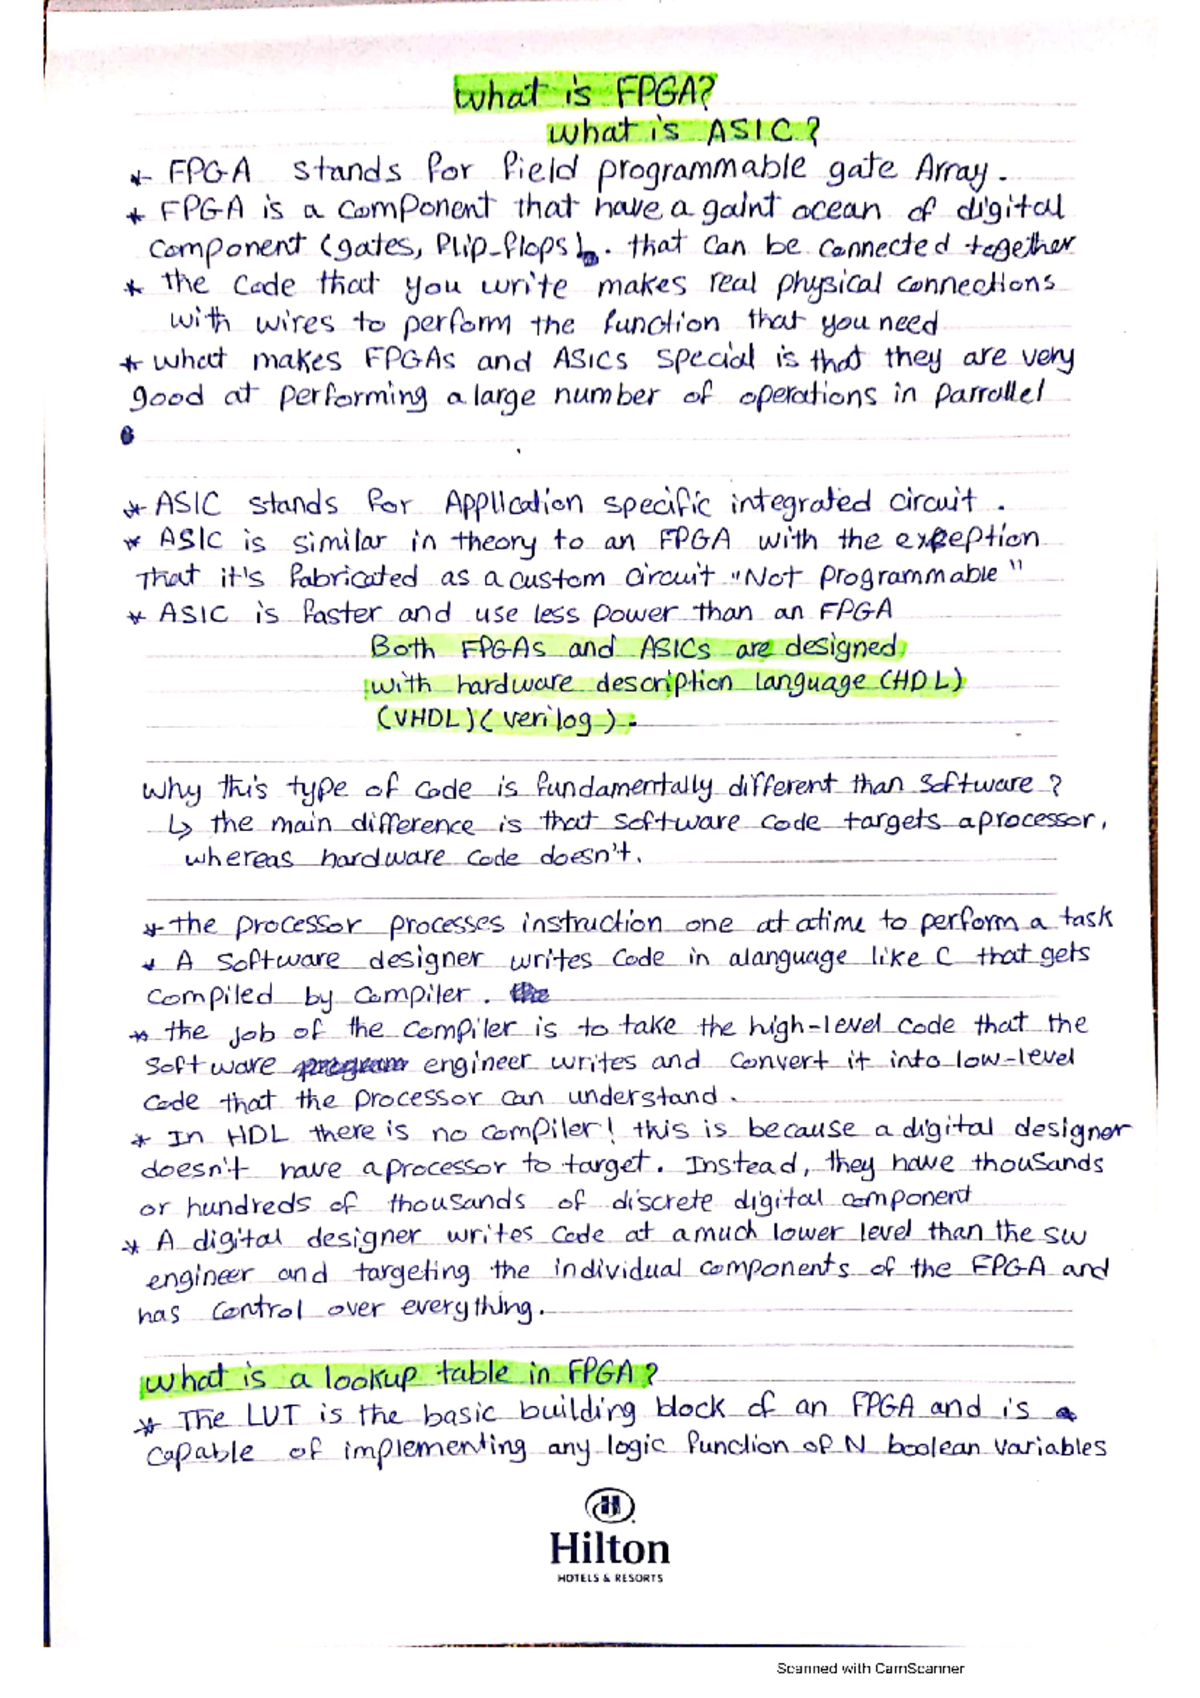 What is FPGA?
What is ASIC?
* FPGA stands for field programmable gate Array.
* FPGA is a component that have a gaint ocean of digital
component (gates, flip_flops). that can be connected together
* the code that you write makes real physical connections
with wires to perform the function that you need
* what makes FPGAs and ASICs special is that they are very
good at performing a large number of operations in parrallel
* ASIC stands for Application specific integrated circuit.
* ASIC is similar in theory to an FPGA with the exception
that it's fabricated as a custom circuit "Not programmable"
* ASIC is faster and use less power than an FPGA
Both FPGAs and ASICs are designed
with hardware description language (HDL)
(VHDL) (verilog).
Why this type of code is fundamentally different than software?
↳ the main difference is that software code targets a processor,
whereas hardware code doesn't.
* the processor processes instruction one at a time to perform a task
* A software designer writes code in a language like C that gets
compiled by compiler. the
* the job of the compiler is to take the high-level code that the
software program engineer writes and convert it into low-level
code that the processor can understand.
* In HDL there is no compiler! this is because a digital designer
doesn't have a processor to target. Instead, they have thousands
or hundreds of thousands of discrete digital component
* A digital designer writes code at a much lower level than the SW
engineer and targeting the individual components of the FPGA and
has control over everything.
what is a lookup table in FPGA?
* The LUT is the basic building block of an FPGA and is
capable of implementing any logic function of N boolean variables
H
Hilton
HOTELS & RESORTS
Scanned with CamScanner